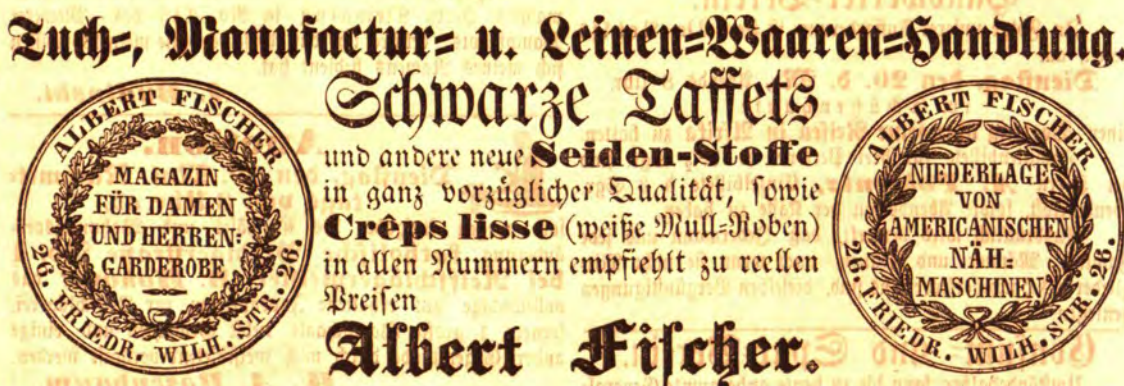 Tuch-, Manufactur- u. Leinen-Waaren-Handlung.
ALBERT FISCHER
MAGAZIN
FÜR DAMEN
UND HERREN-
GARDEROBE
26. FRIEDR. WILH. STR. 26.
Schwarze Taffets
und andere neue Seiden-Stoffe
in ganz vorzüglicher Qualität, sowie
Crêps lisse (weiße Mull-Roben)
in allen Nummern empfiehlt zu reellen
Preisen
Albert Fischer.
ALBERT FISCHER
NIEDERLAGE
VON
AMERICANISCHEN
NÄH-
MASCHINEN
26. FRIEDR. WILH. STR. 26.